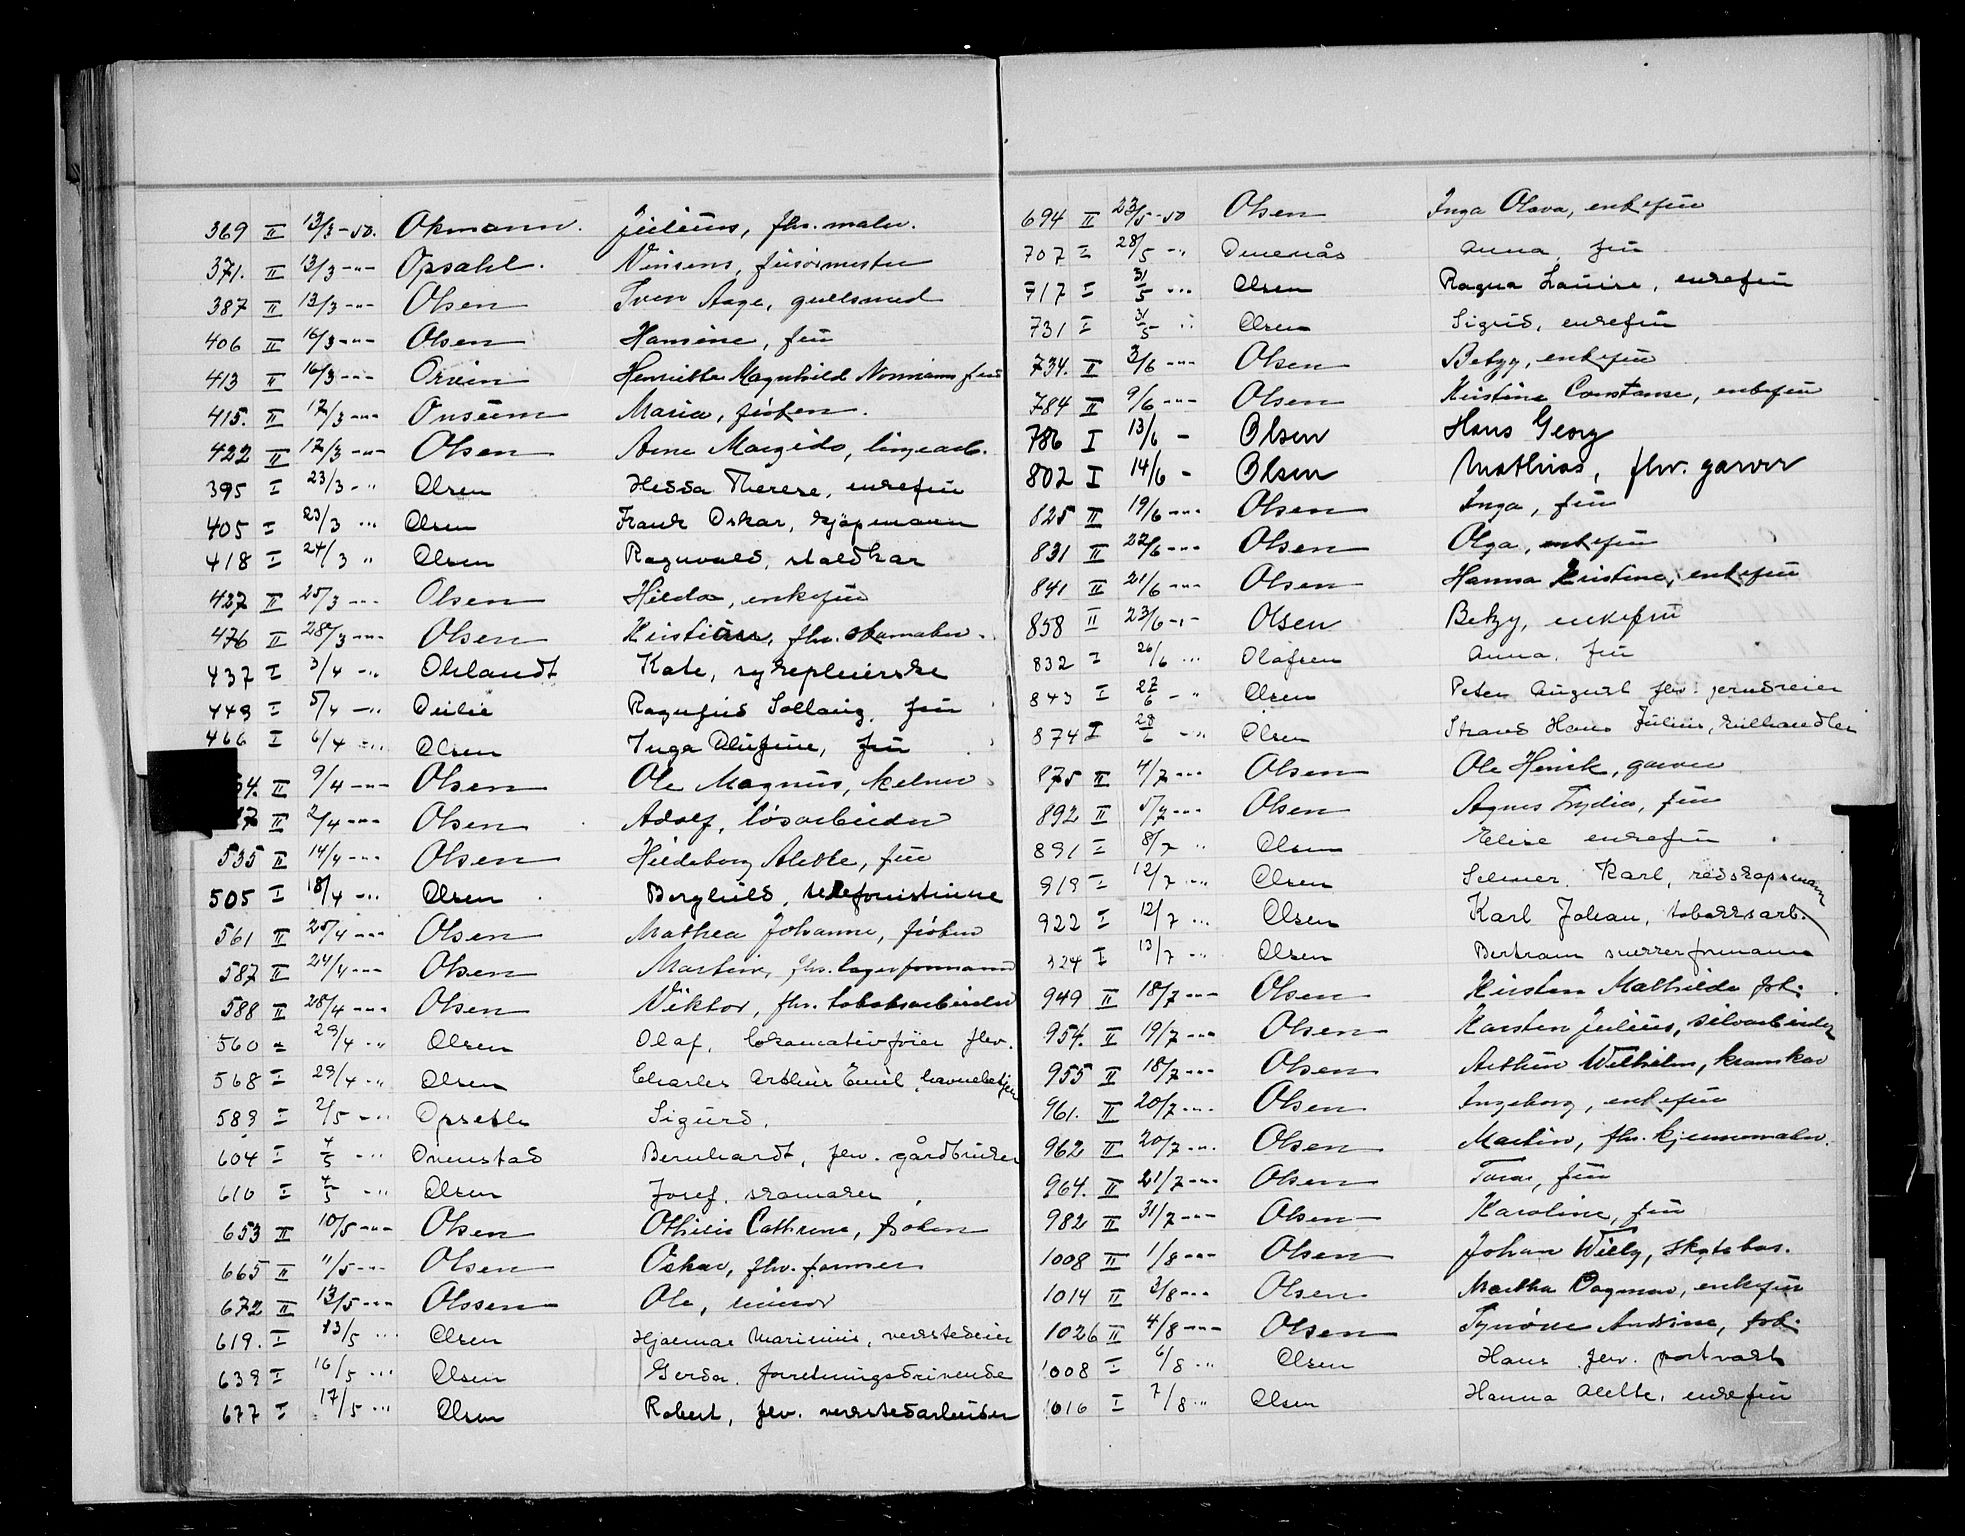 369 II 13/3 -50. Okmann. Julius, fhv. maler.
371. II 13/3 -"- Opsahl. Vinsens, frisørmester
387 II 13/3 -"- Olsen Sven Aage, gullsmed
406 II 16/3 -"- Olsen Hansine, fru
413 II 16/3 -"- Orvin Henriette Magnhild Normann fru
415. II 17/3 -"- Onsum Maria, frøken.
422 II 17/3 -"- Olsen Arne Margido, linjearb.
395 I 23/3 -" Olsen Hedda Therese, enkefru
405 I 23/3 -" Olsen Frank Oskar, kjøpmann
418 I 24/3 " Olsen Ragnvald, staldkar
427 II 25/3 -"- Olsen Hilda, enkefru
476 II 28/3 -"- Olsen Kristian, fhv. skomaker.
437 I 3/4 -" Ohlandt Kate, sykepleierske
449 I 5/4 -" Ragnfrid Solbaug, fru
466 I 6/4 -" Olsen Inga Olufine, fru
54. II 9/4 -"- Olsen Ole Magnus, kelner
II 2/4 -"- Olsen Adolf, løsarbeider
535 II 14/4 -"- Olsen Hildeborg Alette, fru
505 I 18/4 -" Olsen Borghild, telefonistinne
561 II 25/4 -"- Olsen Mathea Johanne, frøken
587 II 24/4 -"- Olsen Martin, fhv. lagerformann
588 II 28/4 -"- Olsen Viktor, fhv. tobaksarbeider
560 " 29/4 -" Olsen Olaf, lokomotivfører fhv.
568 I 29/4 -" Olsen Charles Arthur Emil, havnebetjen
589 I 2/5 -" Opseth Sigurd.
604 I 4/5 -" Ovenstad Bernhardt, fhv. gårdbruker
610 I 4/5 -" Olsen Josef, skomaker
653 II 10/5 -"- Olsen Othilie Cathrine, frøken
665 II 11/5 -"- Olsen Oskar, fhv. former
672 II 13/5 -"- Olssen Ole, minør
619. I 13/5 -" Olsen Hjalmar Marinius, verkstedeier
639 I 16/5 -" Olsen Gerda, forretningsdrivende
677 I 17/5 -" Olsen Robert, fhv. verkstedarbeider
694 II 23/5 -50 Olsen Inga Olava, enkefru
707 I 28/5 -" Anna, fru
717 I 31/5 -" Olsen Ragna Louise, enkefru
731 I 31/5 " Olsen Sigrid, enkefru
734. II 3/6 -"- Olsen Betzy, enkefru
784 II 9/6 -"- Olsen Kristine Constanse, enkefru
786 I 13/6 - Olsen Hans Georg
802 I 14/6 - Olsen Mathias, fhv. garver
825 II 19/6 -"- Olsen Inga, fru
831 II 22/6 -"- Olsen Olga, enkefru
841 II 21/6 -"- Olsen Hanna Kristine, enkefru
858 II 23/6 -"- Olsen Betzy, enkefru
832 I 26/6 -" Olafsen Anna, fru
843 I 27/6 -" Olsen Peter August fhv. jerndreier
874 I 28/6 -" Olsen Strand Hans Julius, kulhandler
875 II 4/7 -"- Olsen Ole Henrik, garver
892 II 5/7 -"- Olsen Agnes Lydia, fru
891 I 8/7 " Olsen Elise enkefru
919 I 12/7 -" Olsen Selmer Karl, redskapsmann
922 I 12/7 -" Olsen Karl Johan, tobakksarb.
924 I 13/7 " Olsen Bertram murerformann
949 II 18/7 -"- Olsen Kirsten Mathilde frk.
954. II 19/7 -"- Olsen Karsten Julius, siloarbeider
955 II 18/7 -"- Olsen Arthur Wilhelm, kranskar
961. II 20/7 -"- Olsen Ingeborg, enkefru
962 II 20/7 -"- Olsen Martin, fhv. kjennemaler.
964. II 21/7 -"- Olsen Tora, fru
982 II 31/7 -"- Olsen Karoline, fru
1008 II 1/8 -"- Olsen Johan Willy, skytebas.
1014 II 3/8 -"- Olsen Martha Dagmar, enkefru
1026 II 4/8 -"- Olsen Synøve Andrine, frk.
1008 I 6/8 -" Olsen Hans fhv. portvakt
1016 I 7/8 -" Olsen Hanna Alette, enkefru